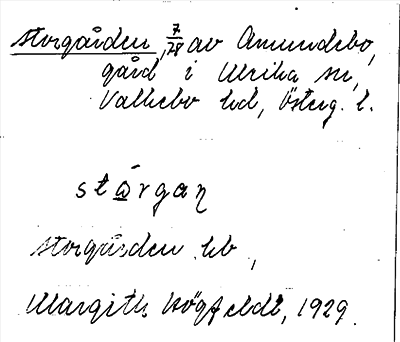 Storgården, 7/28 av Amundebo,
gård i Ulrika sn,
Valkebo hd, Österg. l.
stɷrgaɳ
Storgården hb,
Margith Högfeldt, 1929.